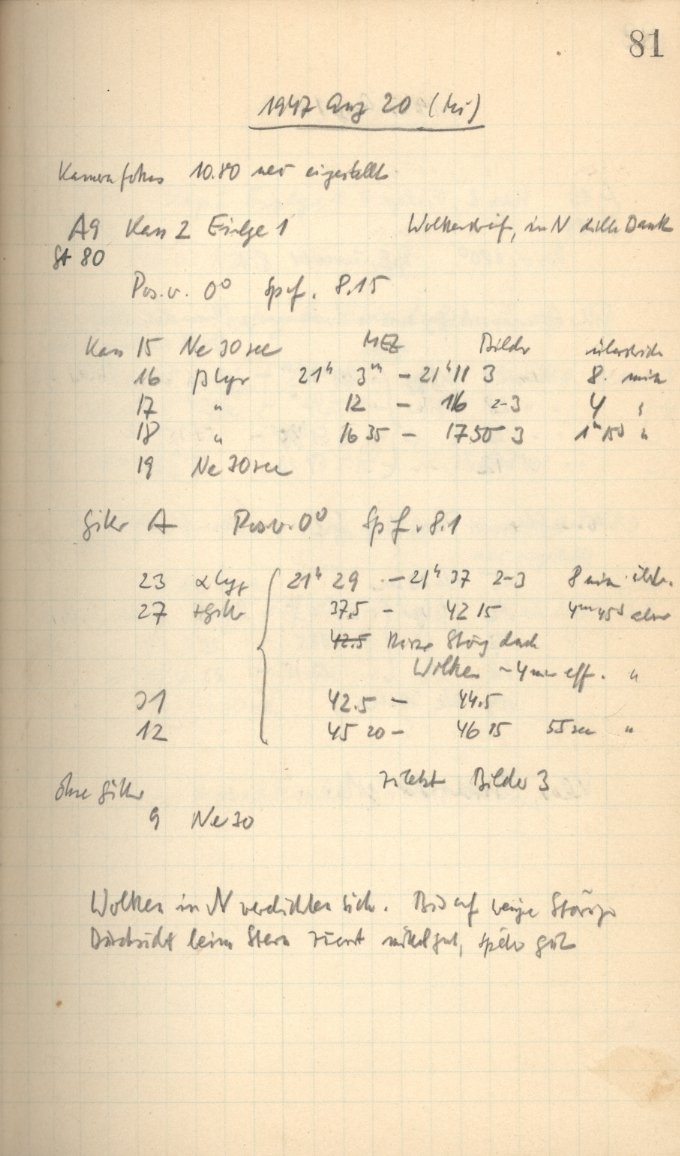 81
1947 Aug 20 (Mi)
Kamerafokus 10.80 neu eingestellt
A9 Kass 2 Einlge 1 Wolkendrift, in N dicke Bank
St 80
Pos.v. 0° Spf. 8.15
Kass 15 Ne 30 sec MEZ Bilder
16 β Lyr 21h 3m – 21h 11 3 8. min
17 " 12 – 16 2-3 4 "
18 " 16 35 – 17 50 3 1m 15s "
19 Ne 30 sec
Gitter A Pos.v. 0° Spf. 8.1
23 α Lyr 21h 29 – 21h 37 2-3 8 min
27 + Gitter 37.5 – 42 15 4m 45s
42.5 Kurze Störg durch
Wolken ~4 min eff. "
31 42.5 – 44.5
12 45 20 – 46 15 55 sec "
zuletzt Bilder 3
ohne Gitter
9 Ne 30
Wolken in N verdichten sich. Bis auf wenige Störge
Durchsicht beim Stern zuerst mittelgut, später gut